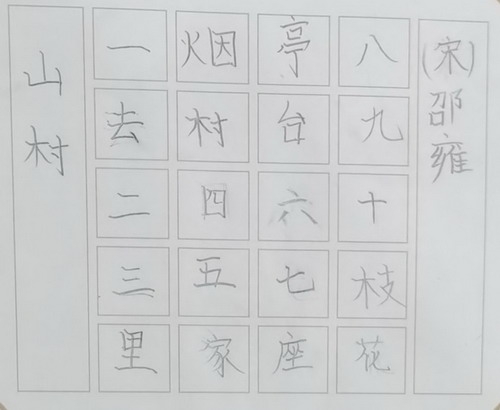 山村
一去二三里
烟村四五家
亭台六七座
八九十枝花
(宋)邵雍